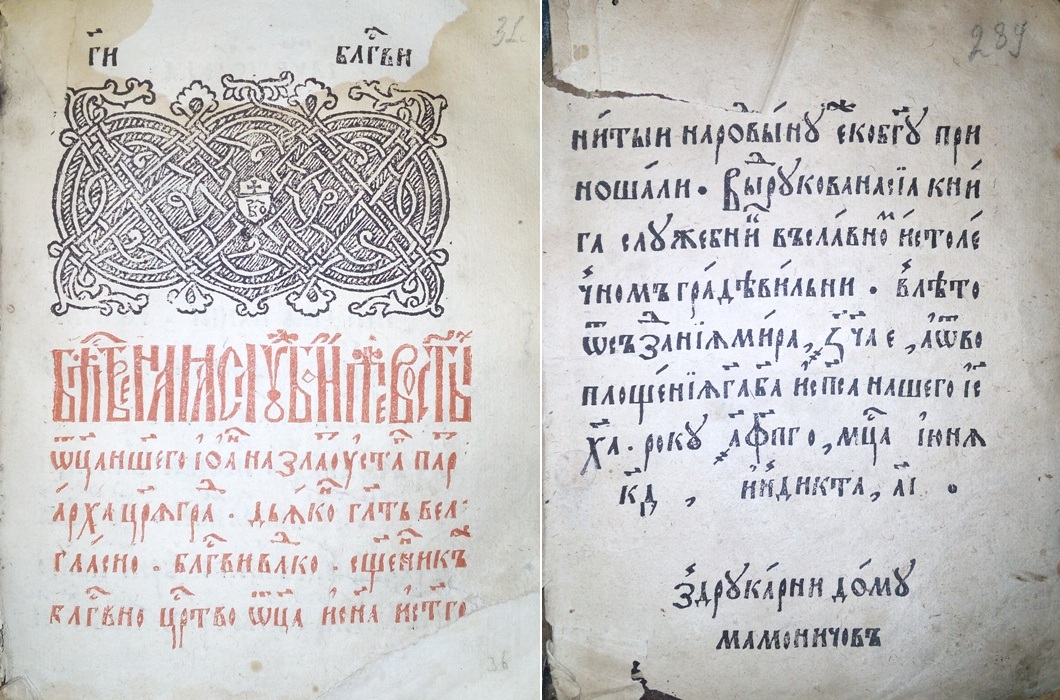 31.
г҃и бл҃гви
ѿца ншего іоана златоуста пар
арха цр҃ягра . дьяко гл҃ть вел
гласно . бл҃гви влⷣко . сщ҃еникъ
бл҃гвено цр҃тво ѿца и сн҃а и ст҃го
36
289
ни́тыи наро́ⷣвы́ну е́ скобг҃у при
ноша́ли . Вы́ⷣрукована сїа кни́
га служебни́к въсла́вноⷨ и́ столе́
чномъ гра́дѣ ви́льни . в лѣ́то
ѿ създа́нїя ми́ра , ҂зч҃а е , а́ ѿ во
площе́нїя га҃ ба҃ и сп҃са нашего іс҃
ха҃ . року ҂аф҃пг о , мц҃а іюня
кд҃ , и́нди́кта , аі҃ .
з друка́рни до́му
мамоничовъ